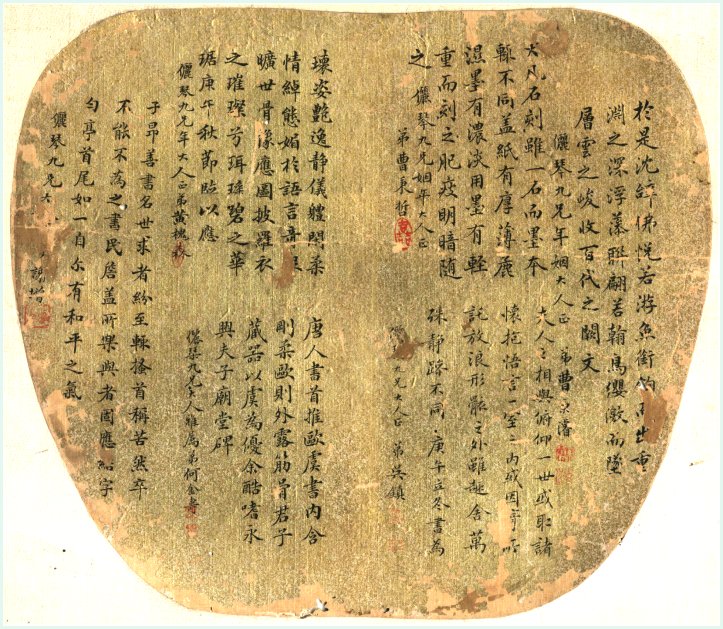 於是沈辭怫悅若游魚銜鉤而出重
淵之深浮藻聯翩若翰鳥纓繳而墜
層雲之峻收百代之闕文
儷琴九兄年姻大人正 弟曹京藩
大凡石刻雖一石而墨本
輒不同蓋紙有厚薄麤
濕墨有濃淡用墨有輕
重而刻之肥瘦明暗隨
之 儷琴九兄姻年大人正
弟曹東哲
夫人之相與俯仰一世或取諸
懷抱悟言一室之內或因寄所
託放浪形骸之外雖趣舍萬
殊靜躁不同 庚午立冬書為
九兄大人正 弟吳鎮
瓌姿艷逸靜儀體閑柔
情綽態媚於語言奇服
曠世骨像應圖披羅衣
之璀璨兮珥瑤碧之華
琚庚午秋節臨以應
儷琴九兄年大人正弟黃槐森
唐人書首推歐虞書內含
剛柔歐則外露筋骨君子
藏器以虞為優余酷嗜永
興夫子廟堂碑
儷琴九兄大人雅屬弟何金壽
子昂善書名世求者紛至輒搔首稱苦然卒
不能不為之書民居蓋所樂與者固應如字
勻亭首尾如一自尒有和平之氣
儷琴九兄大